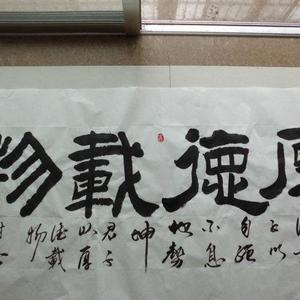 厚德載物
子以
自强
不息
地勢
坤
君子
以厚
德載
物